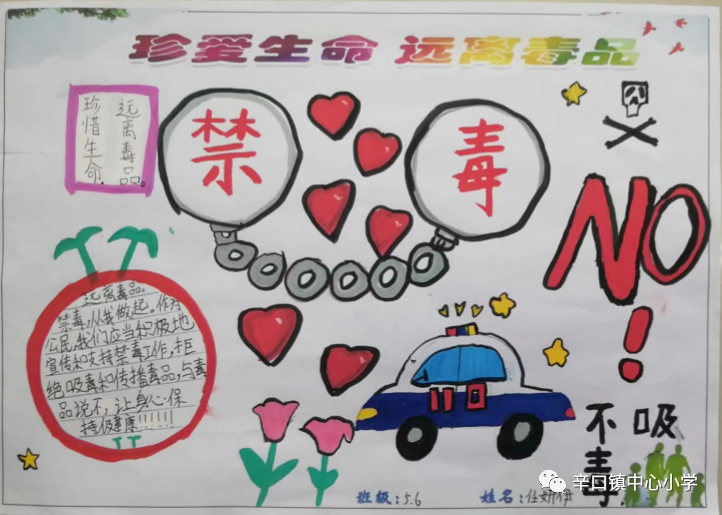 珍爱生命 远离毒品
远离毒品。
珍惜生命，
禁毒
NO!
不吸毒
远离毒品。
禁毒，从我做起。作为
公民，我们应当积极地
宣传和支持禁毒工作，拒
绝吸毒和传播毒品，与毒
品说不，让身心保
持健康!!!!!!
班级：5.6
姓名：任妍
辛口镇中心小学